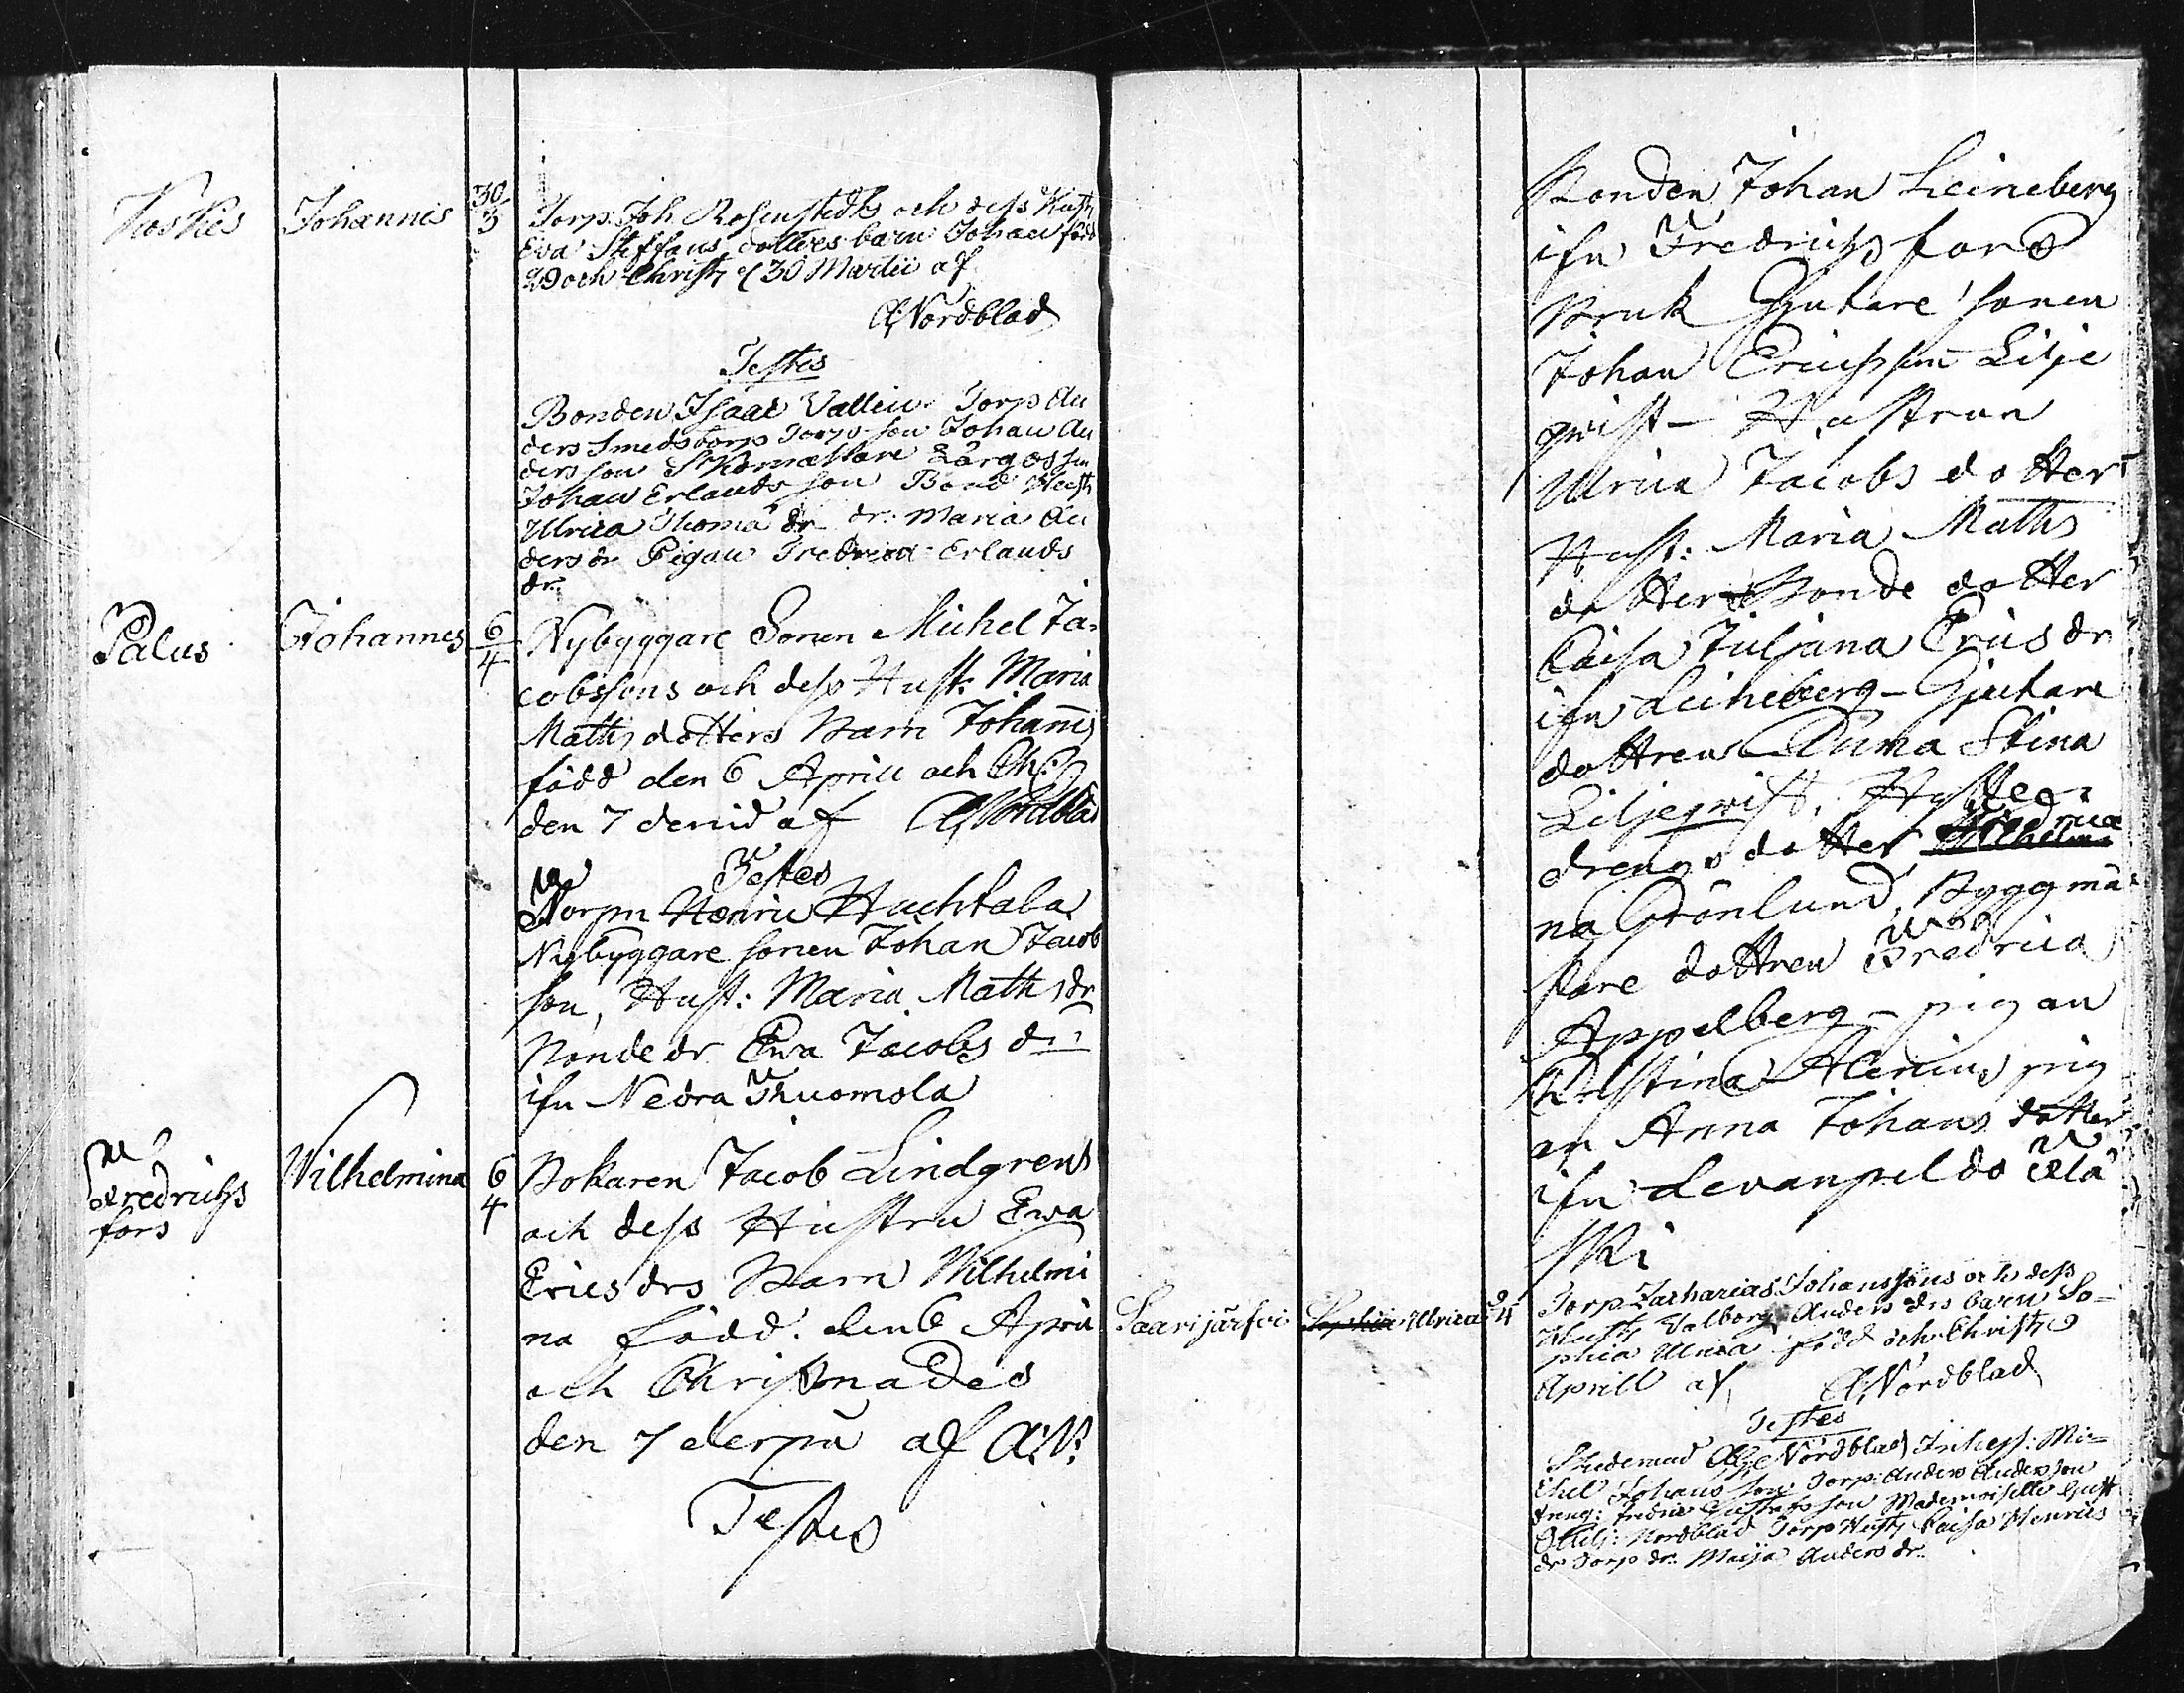 Koskis Johannis 30/3 Torp: Joh Rosenstedts och dess Hust,
Eva Steffans dotters barn Johan född
och Christ, d 30 Martii af
A Nordblad
Testes
Bonden Isaac Vallin Torp An
ders Smedstorp Torp son Johan An
ders son
Johan Erlands son Bond Hust,
Ulrica Thomæ dr dr: Maria An
ders dr Pigan Fredrica Erlands
dr:
Palus Johannes 6/4 Nybyggare Sonen Michel Ja-
cobssons och dess Hust: Maria
Matts dotters Barn Johannes
född den 6 Aprill och Ch:
den 7 derpå af A Nordblad
Testes
Torpn Henric Huchtala
Nybyggare sonen Johan Jacob
son, Hust: Maria Matts dr
Bonde dr Ewa Jacobs dr
ifn Nedra Thuomola
Fredrichs
fors Wilhelmina 6/4 Bokaren Jacob Lindgrens
och dess Hustru Ewa
Erics drs Barn Wilhelmi
na född den 6 April
och Christnades
den 7 derpå af A:N:
Testes
Bonden Johan Leineberg
ifn Fredrichsfors
Bruk Gjutare sonen
Johan Ericsson Lilje
qwist - Hustrun
Ulrica Jacobs dotter
Hust: Maria Matts
dotter Bonde dotter
Caisa Juliana Erics dr
ifn Leineberg - Gjutare
dottren Anna Stina
Liljeqwist,
drengs dotter Fredrica Wilhelmi
na Grönlund, Byggmä
stare dottren Fredrica
Appelberg - pigan
Christina Alenius pig
an Anna Johans dotter
ifn
ski
Saarijärfvi Sophia Ulrica 9/4 Torp Zacharias Johanssons och dess
Hust, Valborg Anders drs barn So-
phia Ulrica född och Christ, 9
Aprill af A Nordblad
Testes
Nordblad, Inhyss: Mi-
chel Johans son Torp: Anders Andersson
dreng: Fredric Gustafs son Mademoiselle Gust
Nordblad Torp Hust, Caisa Henrics
dr Torp dr: Maija Anders dr: